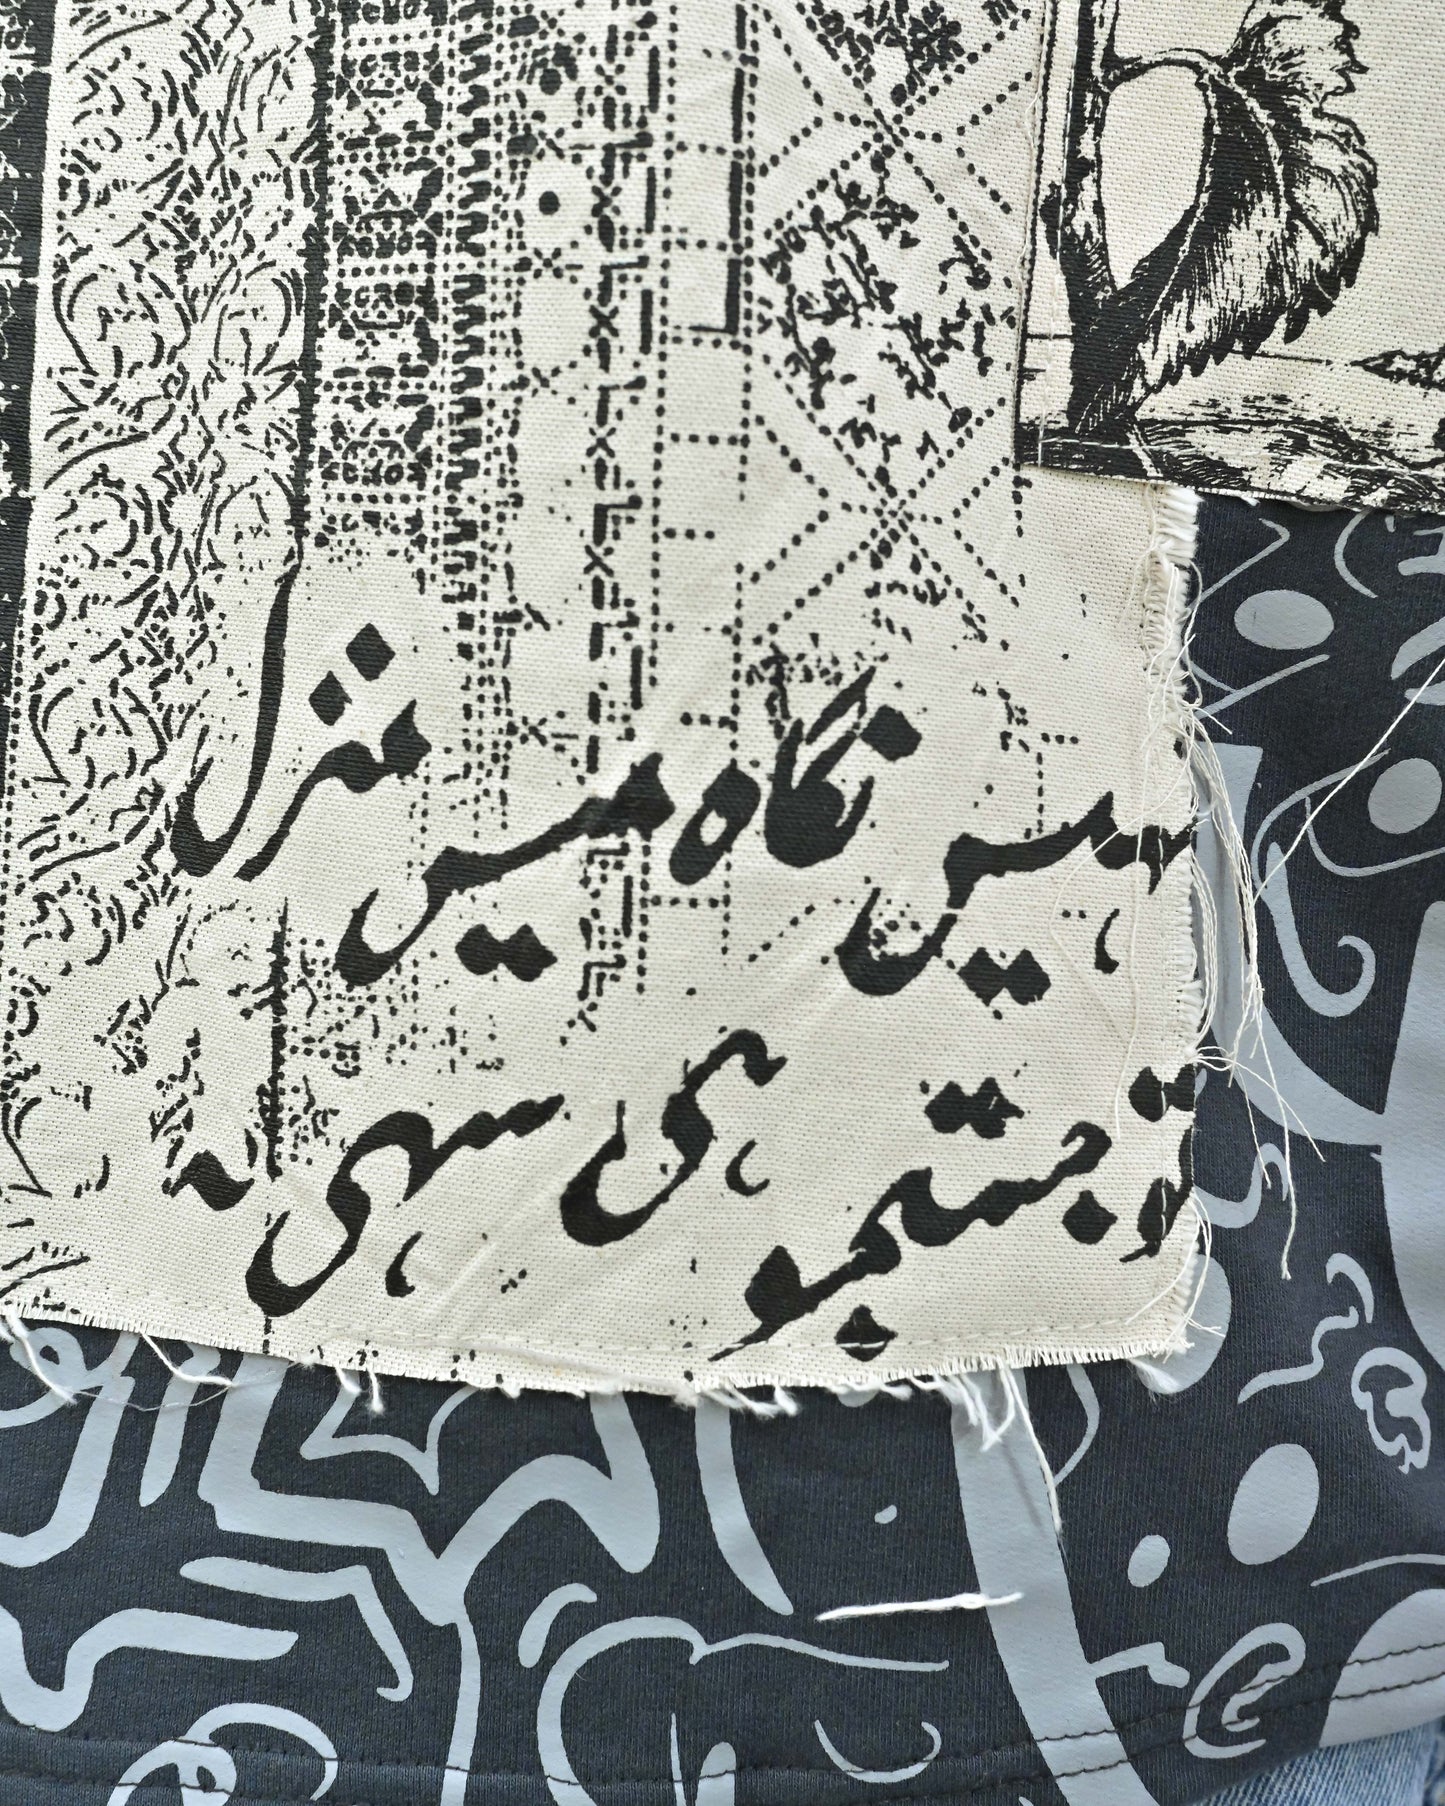 نہیں نگاہ میں منزل
تو جستجو ہی سہی